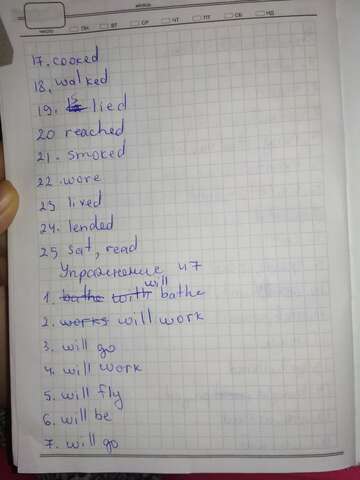 число
ПН ВТ СР ЧТ ПТ СБ НД
17. cooked
18, walked
19. lied
20 reached
21. smoked
22. wore
23 lived
24. lended
25 sat, read
Упражнение 47
will
1. bathe with bathe
2. works will work
3. will go
4. will work
5. will fly
6. will be
7. will go